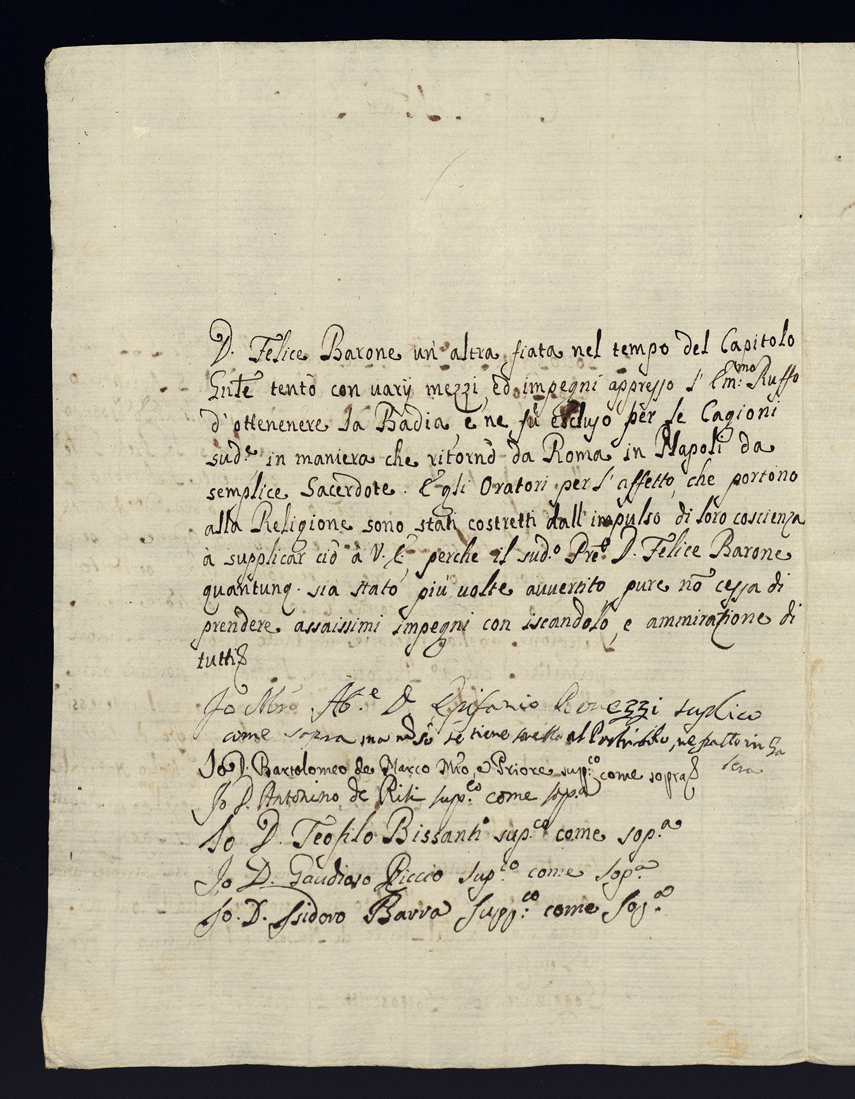 D. Felice Barone un'altra fiata nel tempo del Capitolo
Gn̄te tentò con varÿ mezzi, ed impegni appresso l'Em:mo Ruffo
d'ottenenere la Badia e ne fù escluso per le Cagioni
sud.e in maniera che ritornò da Roma in Napoli da
semplice Sacerdote. E gli Oratori per l'affetto, che portono
alla Religione sono stati costretti dall'impulso di loro coscienza
à supplicar ciò à V.E. perche il sud.o Pre D. Felice Barone
quantunq. sia stato più volte avvertito pure nō cessa di
prendere assaissimi impegni con iscandolo, e ammirazione di
tutti
Io Mro Ab.e D. Epifanio suplico
come sopra ma se tiene al
Io D. Bartolomeo de Marco Mro, e Priore sup:co come sopra
Io D. Antonino de Risi sup.co come sop.a
Io D. Teofilo Bissanti sup.co come sop.a
Io D. Gaudioso Riccio sup.co come sop.a
Io D. Isidoro Barra supp:co come sop.a